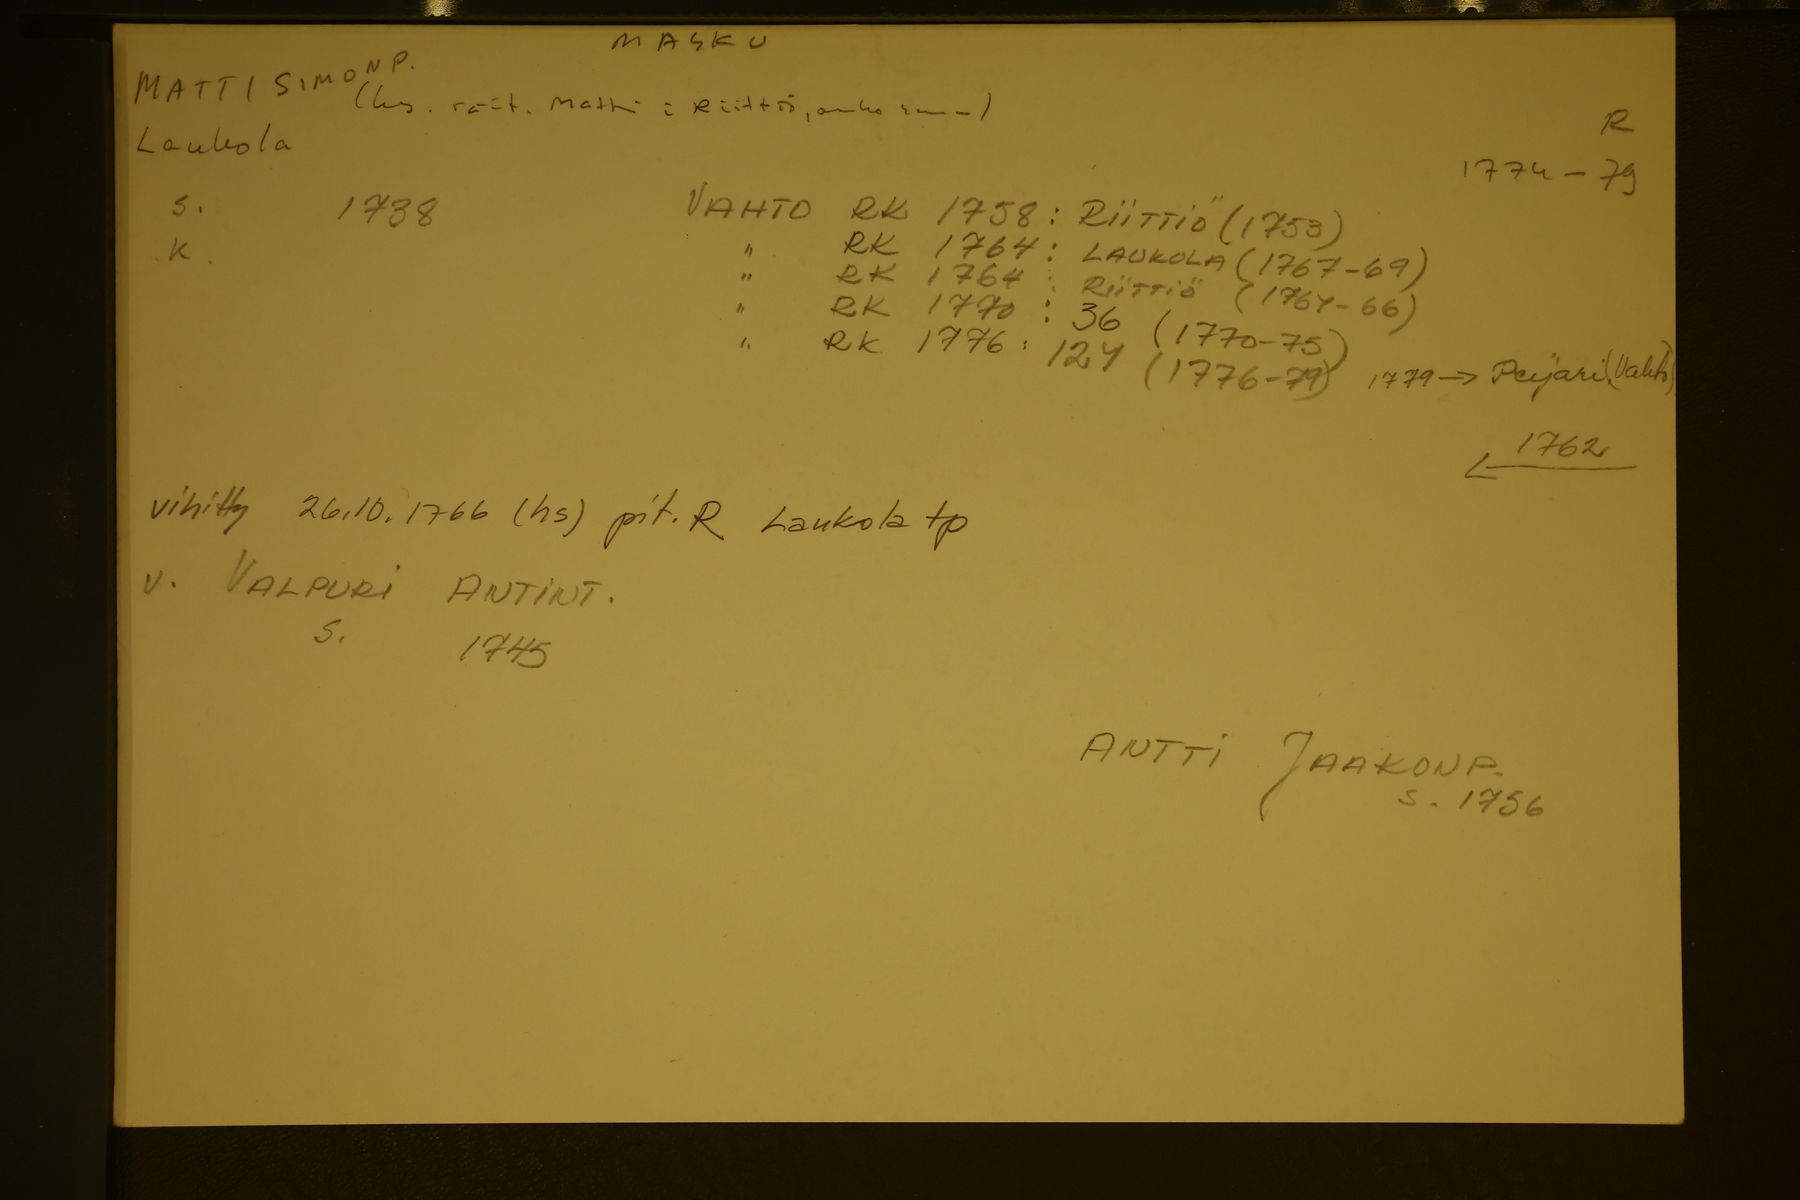 MASKU
MATTI SIMONP.
(hs. räät. Matti i Riittiö, onko sama)
Laukola
R
1774-79
s. 1738
k.
VAHTO RK 1758: RIITTIÖ (1753)
" RK 1764: LAUKOLA (1767-69)
" RK 1764: RIITTIÖ (1764-66)
" RK 1770: 36 (1770-75)
" RK 1776: 124 (1776-79) 1779 → Peijari (Vahto)
1762
←
vihitty 26.10.1766 (hs) pit. R Laukola tp
v. VALPURI ANTINT.
s. 1745
ANTTI JAAKONP.
s. 1756